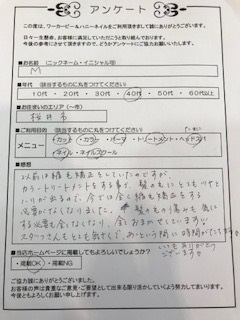 アンケート
この度は、ワーカービー&ハニーネイルをご利用頂きまして誠にありがとうございます。
日々一生懸命、お客様に満足していただこうと取り組んでおります。
今後の参考にさせて頂きますので、どうかアンケートにご協力お願いいたします。
■お名前 (ニックネーム・イニシャル可)
M
■年代 (該当するものに丸をつけてください)
10代・20代・30代・40代・50代・60代以上
■お住まいのエリア(〜市)
桜井市
■ご利用目的 (該当するものに丸をつけてください)
メニュー
・カット ・カラー ・パーマ ・トリートメント ・ヘッドスパ
・ネイル ・ネイルスクール
■感想
以前は縮毛矯正をしていたのですが、
カラートリートメントをする事で、髪の毛にとてもツヤと
ハリが出るので、今では縮毛矯正をする
必要がなくなりました。髪の毛の傷みも気に
する必要もなくなり、
スタッフさんもとても気さくで、あっという間に時間がたちます。
いつもありがとう
ございます
■当店ホームページに掲載してもよろしいでしょうか?
・掲載OK ・掲載NG
ご協力誠にありがとうございました。
お客様の声は貴重なご意見・ご要望として出来る限り活かしていくよう努力してまいります。
今後ともよろしくお願い申し上げます。